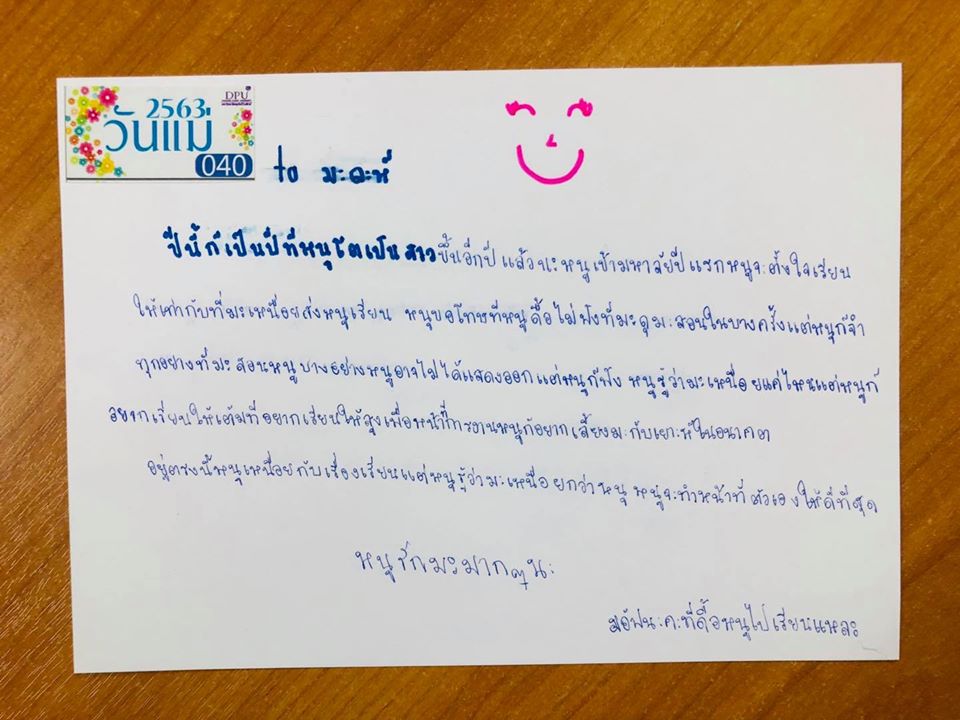 2563
วันแม่
DPU
040
to มะละห์
ปีนี้ก็เป็นปีที่หนูโตเป็นสาวขึ้นอีกปีแล้วนะหนูเข้ามหาลัยปีแรกหนูจะตั้งใจเรียน
ให้เท่ากับที่มะเหนื่อยส่งหนูเรียน หนูขอโทษที่หนูดื้อไม่ฟังที่มะดุมะสอนในบางครั้งแต่หนูก็จำ
ทุกอย่างที่มะสอนหนูบางอย่างหนูอาจไม่ได้แสดงออกแต่หนูก็ฟัง หนูรู้ว่ามะเหนื่อยแค่ไหนแต่หนูก็
อยากเรียนให้เต้มที่อยากเรียนให้สูงเพื่อหน้าที่การงานหนูก็อยากเลี้ยงมะกับเยาะห์ในอนาคต
อยู่ตรงนี้หนูเหนื่อยกับเรื่องเรียนแต่หนูรู้ว่ามะเหนื่อยกว่าหนู หนูจะทำหน้าที่ตัวเองให้ดีที่สุด
หนูรักมะมากๆนะ
ที่ดื้อหนูไปเรียนแหละ